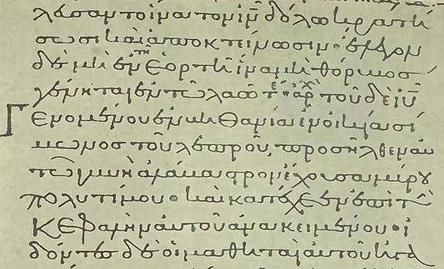 λευσαντο ἵνα τὸν ιν δόλω κρατή
σωσι καὶ ἀποκτείνωσιν· ἔλεγον
δὲ μὴ ἐν τη ἑορτῆ ἵνα μὴ θόρυβος
γένηται ἐν τῶ λαῶ τοῦ δὲ ιυ
Γενομένου ἐν βηθανία ἐν οἰκία σί
μωνος τοῦ λεπροῦ, προσῆλθεν αὐ
τῶ γυνὴ ἀλάβαστρον ἔχουσα μύρου
πολυτίμου καὶ κατέχεεν ἐπὶ τ
κεφαλὴν αὐτοῦ ἀνακειμένου· ἰ
δόντες δὲ οἱ μαθηταὶ αὐτοῦ ἠγα